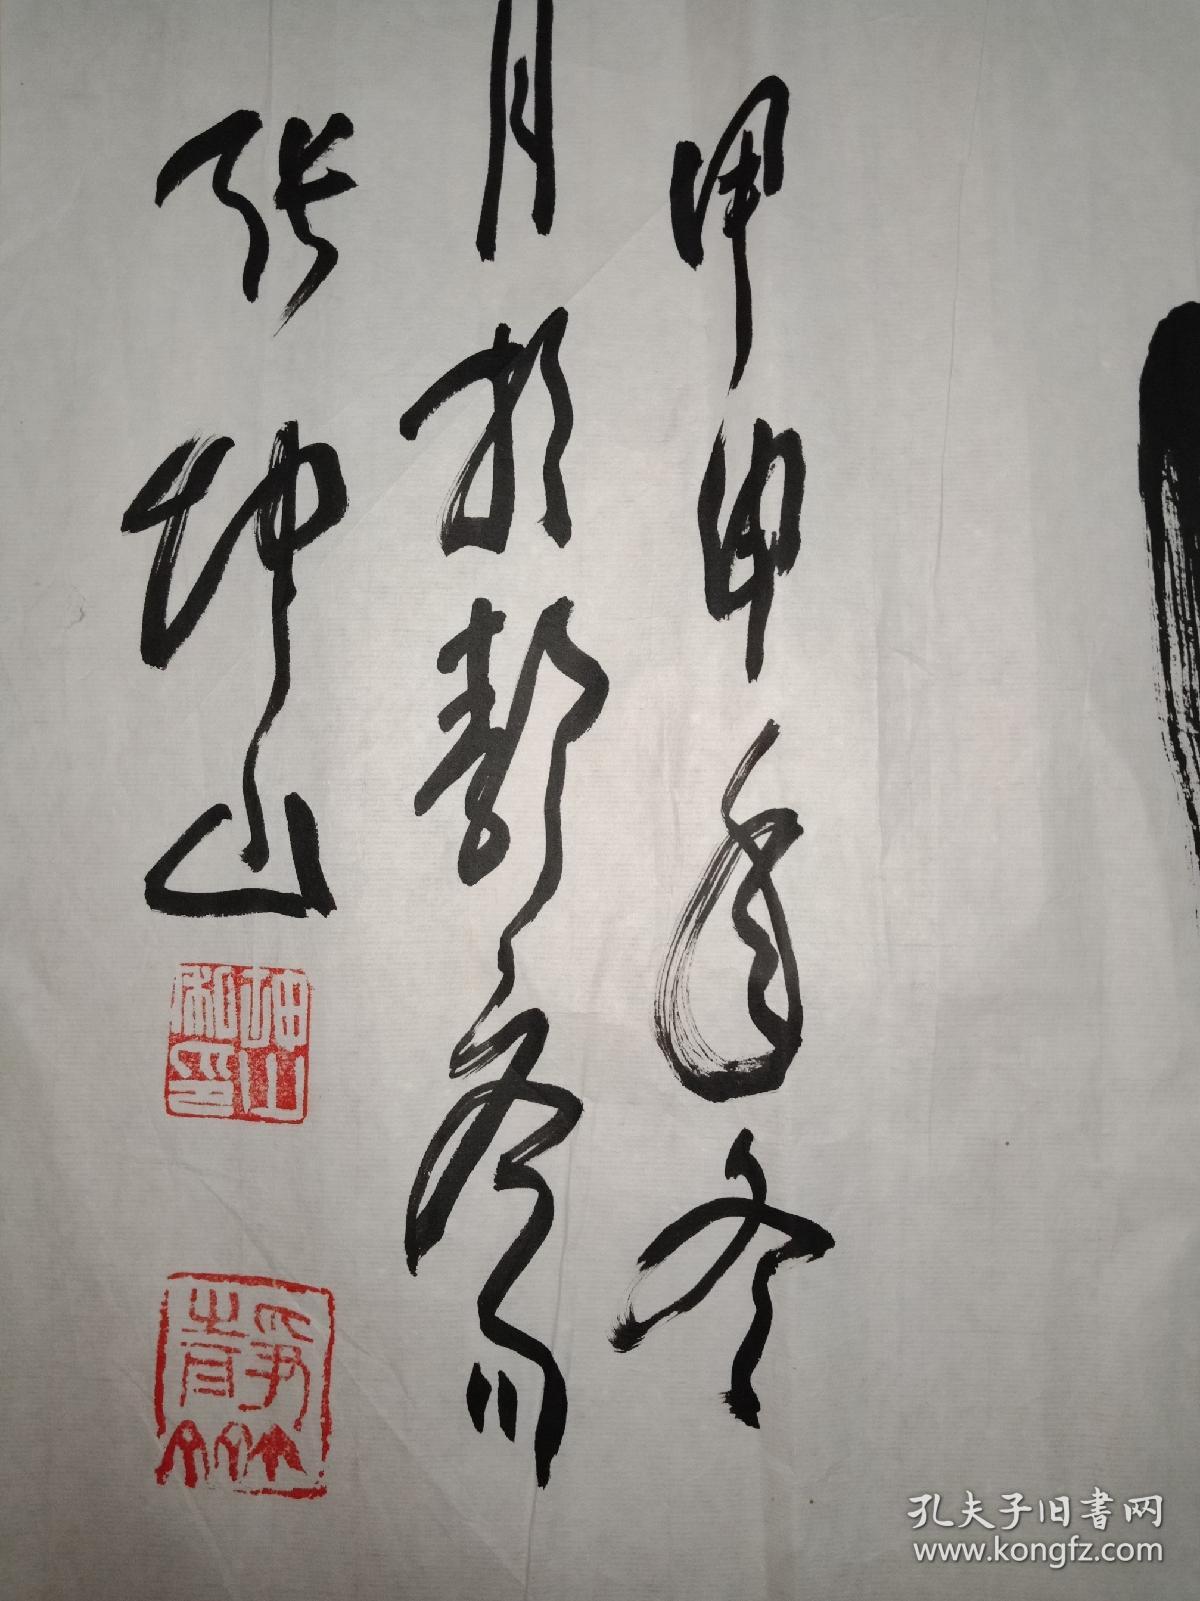 甲申年冬
月於齋
张坤山
坤山私印
静
孔夫子旧书网
www.kongfz.com